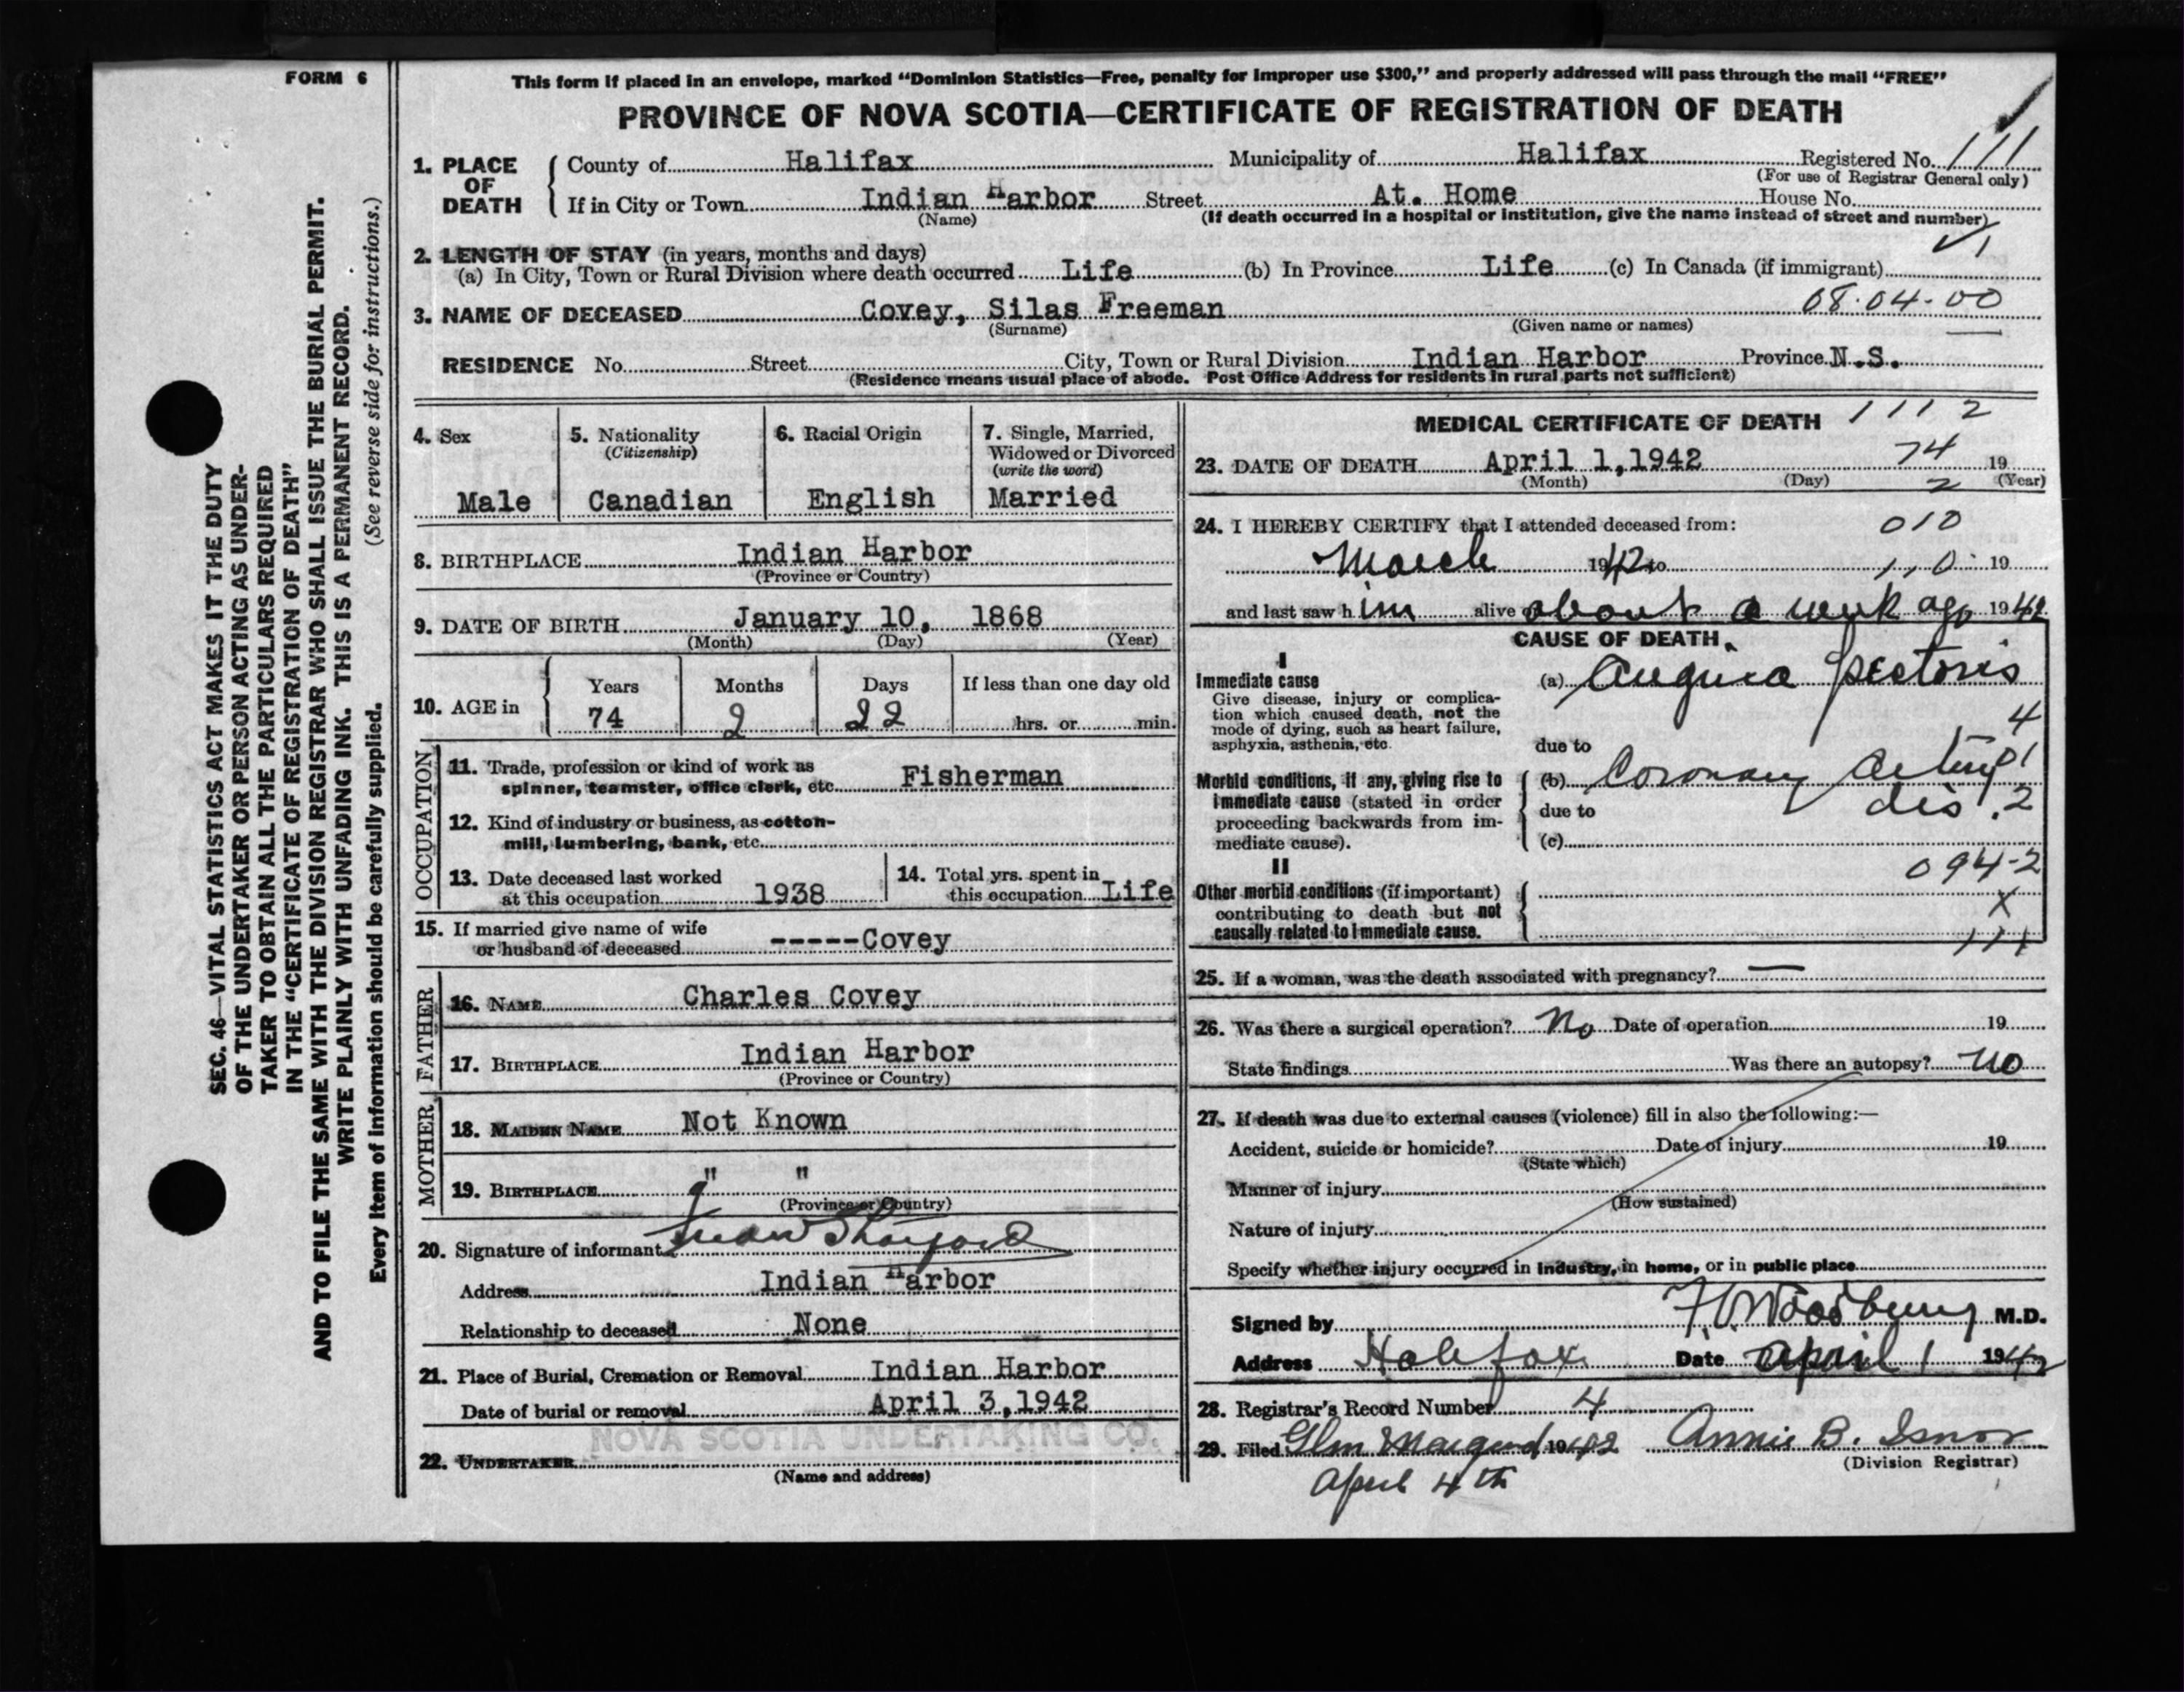 FORM 6
This form if placed in an envelope, marked "Dominion Statistics—Free, penalty for improper use $300," and properly addressed will pass through the mail "FREE"
PROVINCE OF NOVA SCOTIA—CERTIFICATE OF REGISTRATION OF DEATH
1. PLACE OF DEATH
County of Halifax Municipality of Halifax Registered No. 111
(For use of Registrar General only)
If in City or Town Indian Harbor Street At. Home House No.
(Name) (If death occurred in a hospital or institution, give the name instead of street and number)
2. LENGTH OF STAY (in years, months and days)
(a) In City, Town or Rural Division where death occurred Life (b) In Province Life (c) In Canada (if immigrant)
08·04-00
3. NAME OF DECEASED Covey, Silas Freeman
(Surname) (Given name or names)
RESIDENCE No. Street City, Town or Rural Division Indian Harbor Province N.S.
(Residence means usual place of abode. Post Office Address for residents in rural parts not sufficient)
4. Sex
Male
5. Nationality
(Citizenship)
Canadian
6. Racial Origin
English
7. Single, Married,
Widowed or Divorced
(write the word)
Married
8. BIRTHPLACE Indian Harbor
(Province or Country)
9. DATE OF BIRTH January 10, 1868
(Month) (Day) (Year)
10. AGE in
Years Months Days If less than one day old
74 2 22 hrs. or min.
OCCUPATION
11. Trade, profession or kind of work as
spinner, teamster, office clerk, etc. Fisherman
12. Kind of industry or business, as cotton-
mill, lumbering, bank, etc.
13. Date deceased last worked
at this occupation 1938
14. Total yrs. spent in
this occupation Life
15. If married give name of wife
or husband of deceased -----Covey
FATHER
16. NAME Charles Covey
17. BIRTHPLACE Indian Harbor
(Province or Country)
MOTHER
18. MAIDEN NAME Not Known
19. BIRTHPLACE " "
(Province or Country)
20. Signature of informant
Address Indian Harbor
Relationship to deceased None
21. Place of Burial, Cremation or Removal Indian Harbor
Date of burial or removal April 3,1942
NOVA SCOTIA UNDERTAKING CO.
22. UNDERTAKER
(Name and address)
MEDICAL CERTIFICATE OF DEATH 1112
23. DATE OF DEATH April 1,1942 74 19
(Month) (Day) 2 (Year)
24. I HEREBY CERTIFY that I attended deceased from: 010
March 1942 to 1,0 19
and last saw him alive on about a week ago 1942
CAUSE OF DEATH
I
Immediate cause
Give disease, injury or complica-
tion which caused death, not the
mode of dying, such as heart failure,
asphyxia, asthenia, etc.
(a) Angina pectoris
4
due to
Morbid conditions, if any, giving rise to
immediate cause (stated in order
proceeding backwards from im-
mediate cause).
(b) Coronary Artery 01
due to dis. 2
(c)
II
094-2
Other morbid conditions (if important)
contributing to death but not
causally related to immediate cause.
X
111
25. If a woman, was the death associated with pregnancy? —
26. Was there a surgical operation? No Date of operation 19
State findings Was there an autopsy? no
27. If death was due to external causes (violence) fill in also the following:—
Accident, suicide or homicide? Date of injury 19
(State which)
Manner of injury
(How sustained)
Nature of injury
Specify whether injury occurred in industry, in home, or in public place
Signed by F.V. Woodbury M.D.
Address Halifax Date April 1 1942
28. Registrar's Record Number 4
29. Filed 1942 Annie B. Isnor
(Division Registrar)
April 4th
SEC. 46—VITAL STATISTICS ACT MAKES IT THE DUTY
OF THE UNDERTAKER OR PERSON ACTING AS UNDER-
TAKER TO OBTAIN ALL THE PARTICULARS REQUIRED
IN THE "CERTIFICATE OF REGISTRATION OF DEATH"
AND TO FILE THE SAME WITH THE DIVISION REGISTRAR WHO SHALL ISSUE THE BURIAL PERMIT.
WRITE PLAINLY WITH UNFADING INK. THIS IS A PERMANENT RECORD.
Every item of information should be carefully supplied. (See reverse side for instructions.)